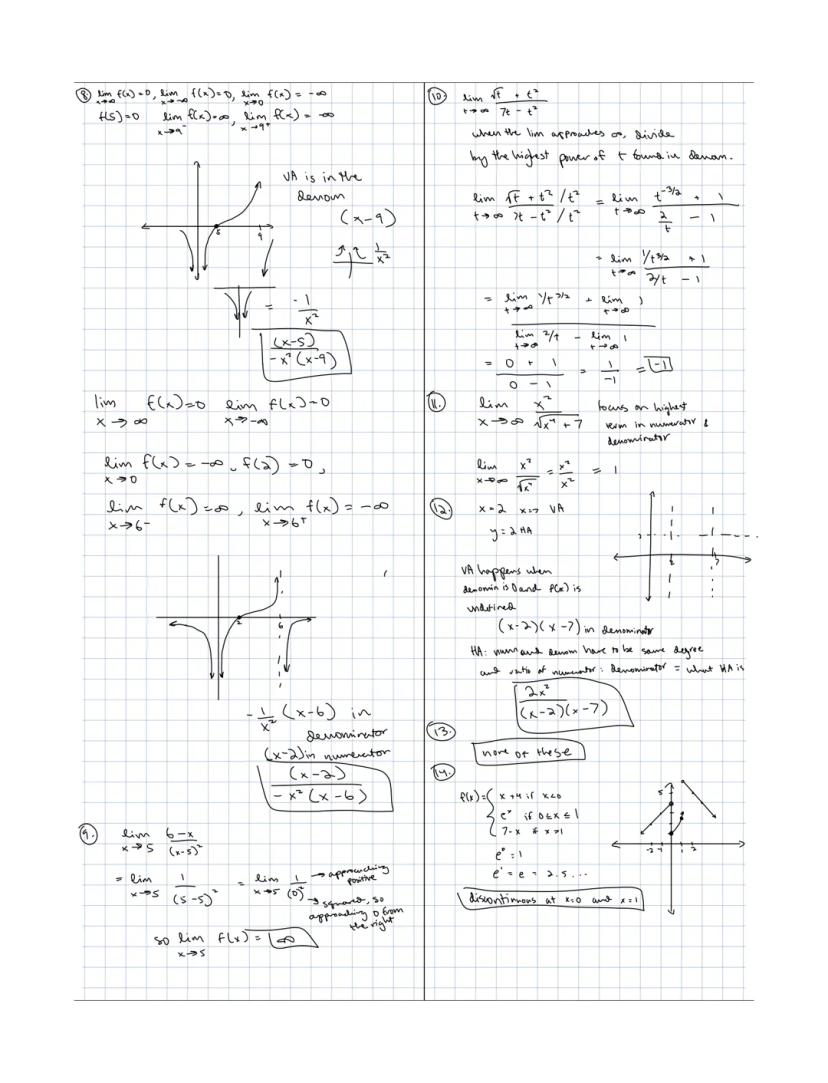 8. lim x→∞ f(x)=0, lim x→-∞ f(x)=0, lim x→0 f(x) = -∞
f(5)=0 lim x→9⁻ f(x)=∞, lim x→9⁺ f(x) = -∞
VA is in the
denom
(x-9)
5
9
1/x²
= -1/x²
(x-5)/(-x²(x-9))
lim x→∞ f(x)=0 lim x→-∞ f(x)=0
lim x→0 f(x) = -∞, f(2) = 0,
lim x→6- f(x)=∞, lim x→6⁺ f(x) = -∞
2
6
-1/x² (x-6) in
denominator
(x-2) in numerator
(x-2)/(-x²(x-6))
9. lim x→5 (6-x)/(x-5)²
= lim x→5 1/(5-5)² = lim x→5 1/(0)² → approaching
positive
→ squared, so
approaching 0 from
the right
so lim x→5 f(x) = ∞
10. lim t→∞ (√t + t²)/(7t - t²)
when the lim approaches ∞, divide
by the highest power of t found in denom.
lim t→∞ (√t + t² /t²)/(7t - t² /t²) = lim t→∞ (t^(-3/2) + 1)/(2/t - 1)
= lim t→∞ (1/t^(3/2) + 1)/(2/t - 1)
= (lim t→∞ 1/t^(3/2) + lim t→∞ 1)/(lim t→∞ 2/t - lim t→∞ 1)
= (0 + 1)/(0 - 1) = 1/-1 = -1
11. lim x→∞ x²/√(x⁴ + 7) focus on highest
term in numerator &
denominator
lim x→∞ x²/√x⁴ = x²/x² = 1
12. x=2 x=7 VA
y=2 HA
VA happens when
denomin is 0 and f(x) is
undefined
(x-2)(x-7) in denominator
HA: num and denom have to be same degree
and ratio of numerator : denominator = what HA is
2x²/((x-2)(x-7))
13.
none of these
14.
f(x)={ x+4 if x<0
eˣ if 0≤x≤1
7-x if x>1
e⁰ = 1
e¹ = e = 2.5...
discontinuous at x=0 and x=1
5
1 2